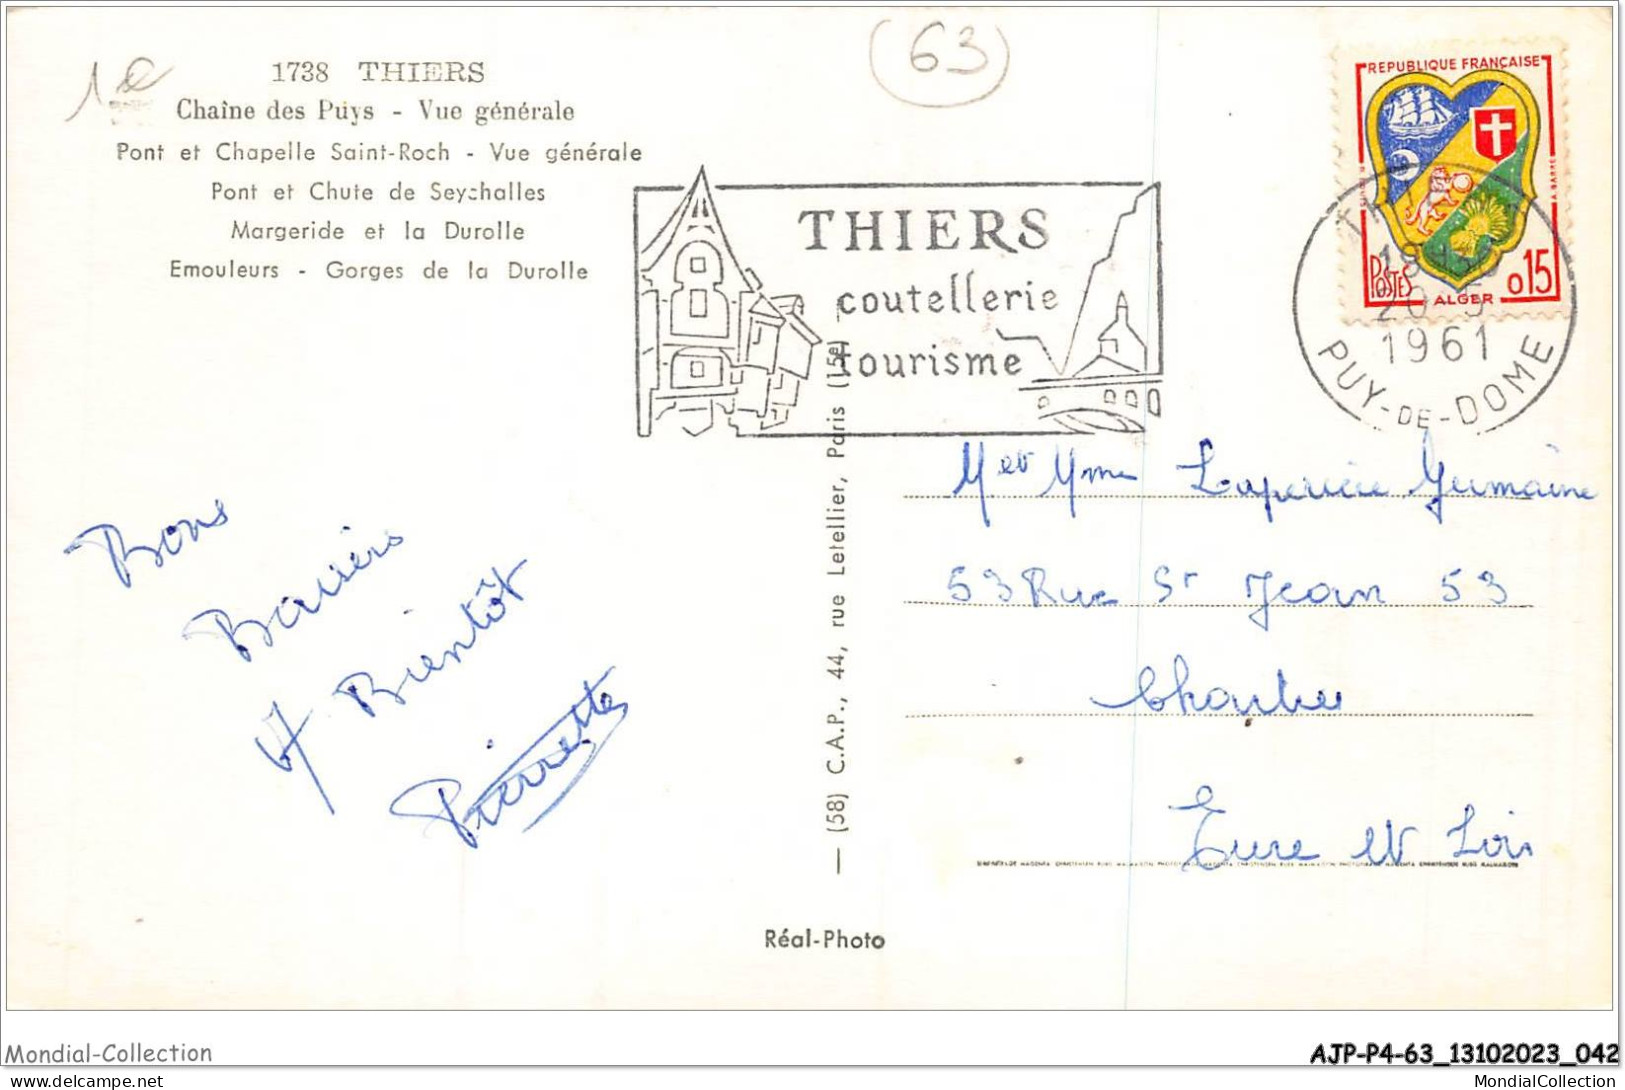 1 e
(63)
1738 THIERS
Chaîne des Puys - Vue générale
Pont et Chapelle Saint-Roch - Vue générale
Pont et Chute de Seychalles
Margeride et la Durolle
Emouleurs - Gorges de la Durolle
THIERS
coutellerie
tourisme
REPUBLIQUE FRANÇAISE
POSTES
ALGER
0,15
1961
PUY-DE-DOME
Bons
Baisers
A Bientôt
Pierrette
— (58) C.A.P., 44, rue Letellier, Paris (15e)
M et Mme Laperière Germaine
53 Rue St Jean 53
Eure et Loir
Réal-Photo
Mondial-Collection
AJP-P4-63_13102023_042
delcampe.net
MondialCollection